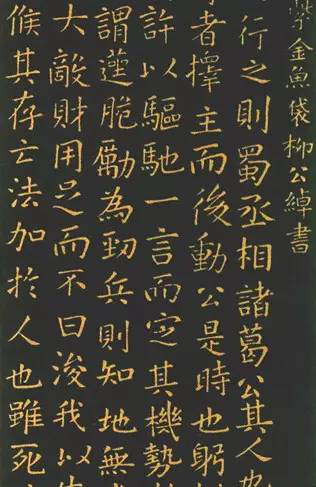 紫金魚袋柳公綽書
行之則蜀丞相諸葛公其人也
者擇主而後動公是時也躬
許以驅馳一言而定其機勢
謂脆勵為勁兵則知地無
大敵財用足而不曰浚我以
候其存亡法加於人也雖死